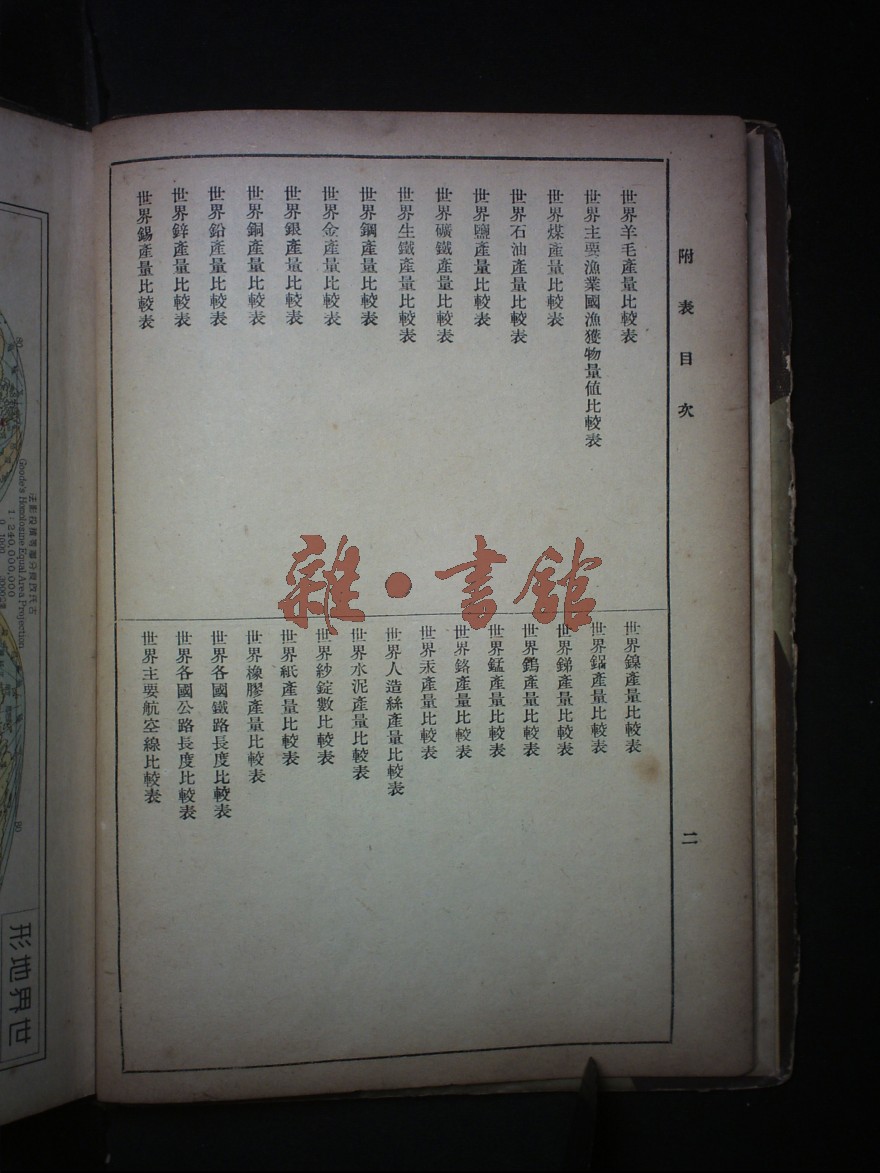 附表目次
世界羊毛產量比較表
世界主要漁業國漁獲物量値比較表
世界煤產量比較表
世界石油產量比較表
世界鹽產量比較表
世界礦鐵產量比較表
世界生鐵產量比較表
世界鋼產量比較表
世界金產量比較表
世界銀產量比較表
世界銅產量比較表
世界鉛產量比較表
世界鋅產量比較表
世界錫產量比較表
世界鎳產量比較表
世界鋁產量比較表
世界銻產量比較表
世界鎢產量比較表
世界錳產量比較表
世界鉻產量比較表
世界汞產量比較表
世界人造絲產量比較表
世界水泥產量比較表
世界紗錠數比較表
世界紙產量比較表
世界橡膠產量比較表
世界各國鐵路長度比較表
世界各國公路長度比較表
世界主要航空線比較表
二
雜·書館
古氏等積投影法
Goode's Homolosine Equal Area Projection
1:240,000,000
世界地形